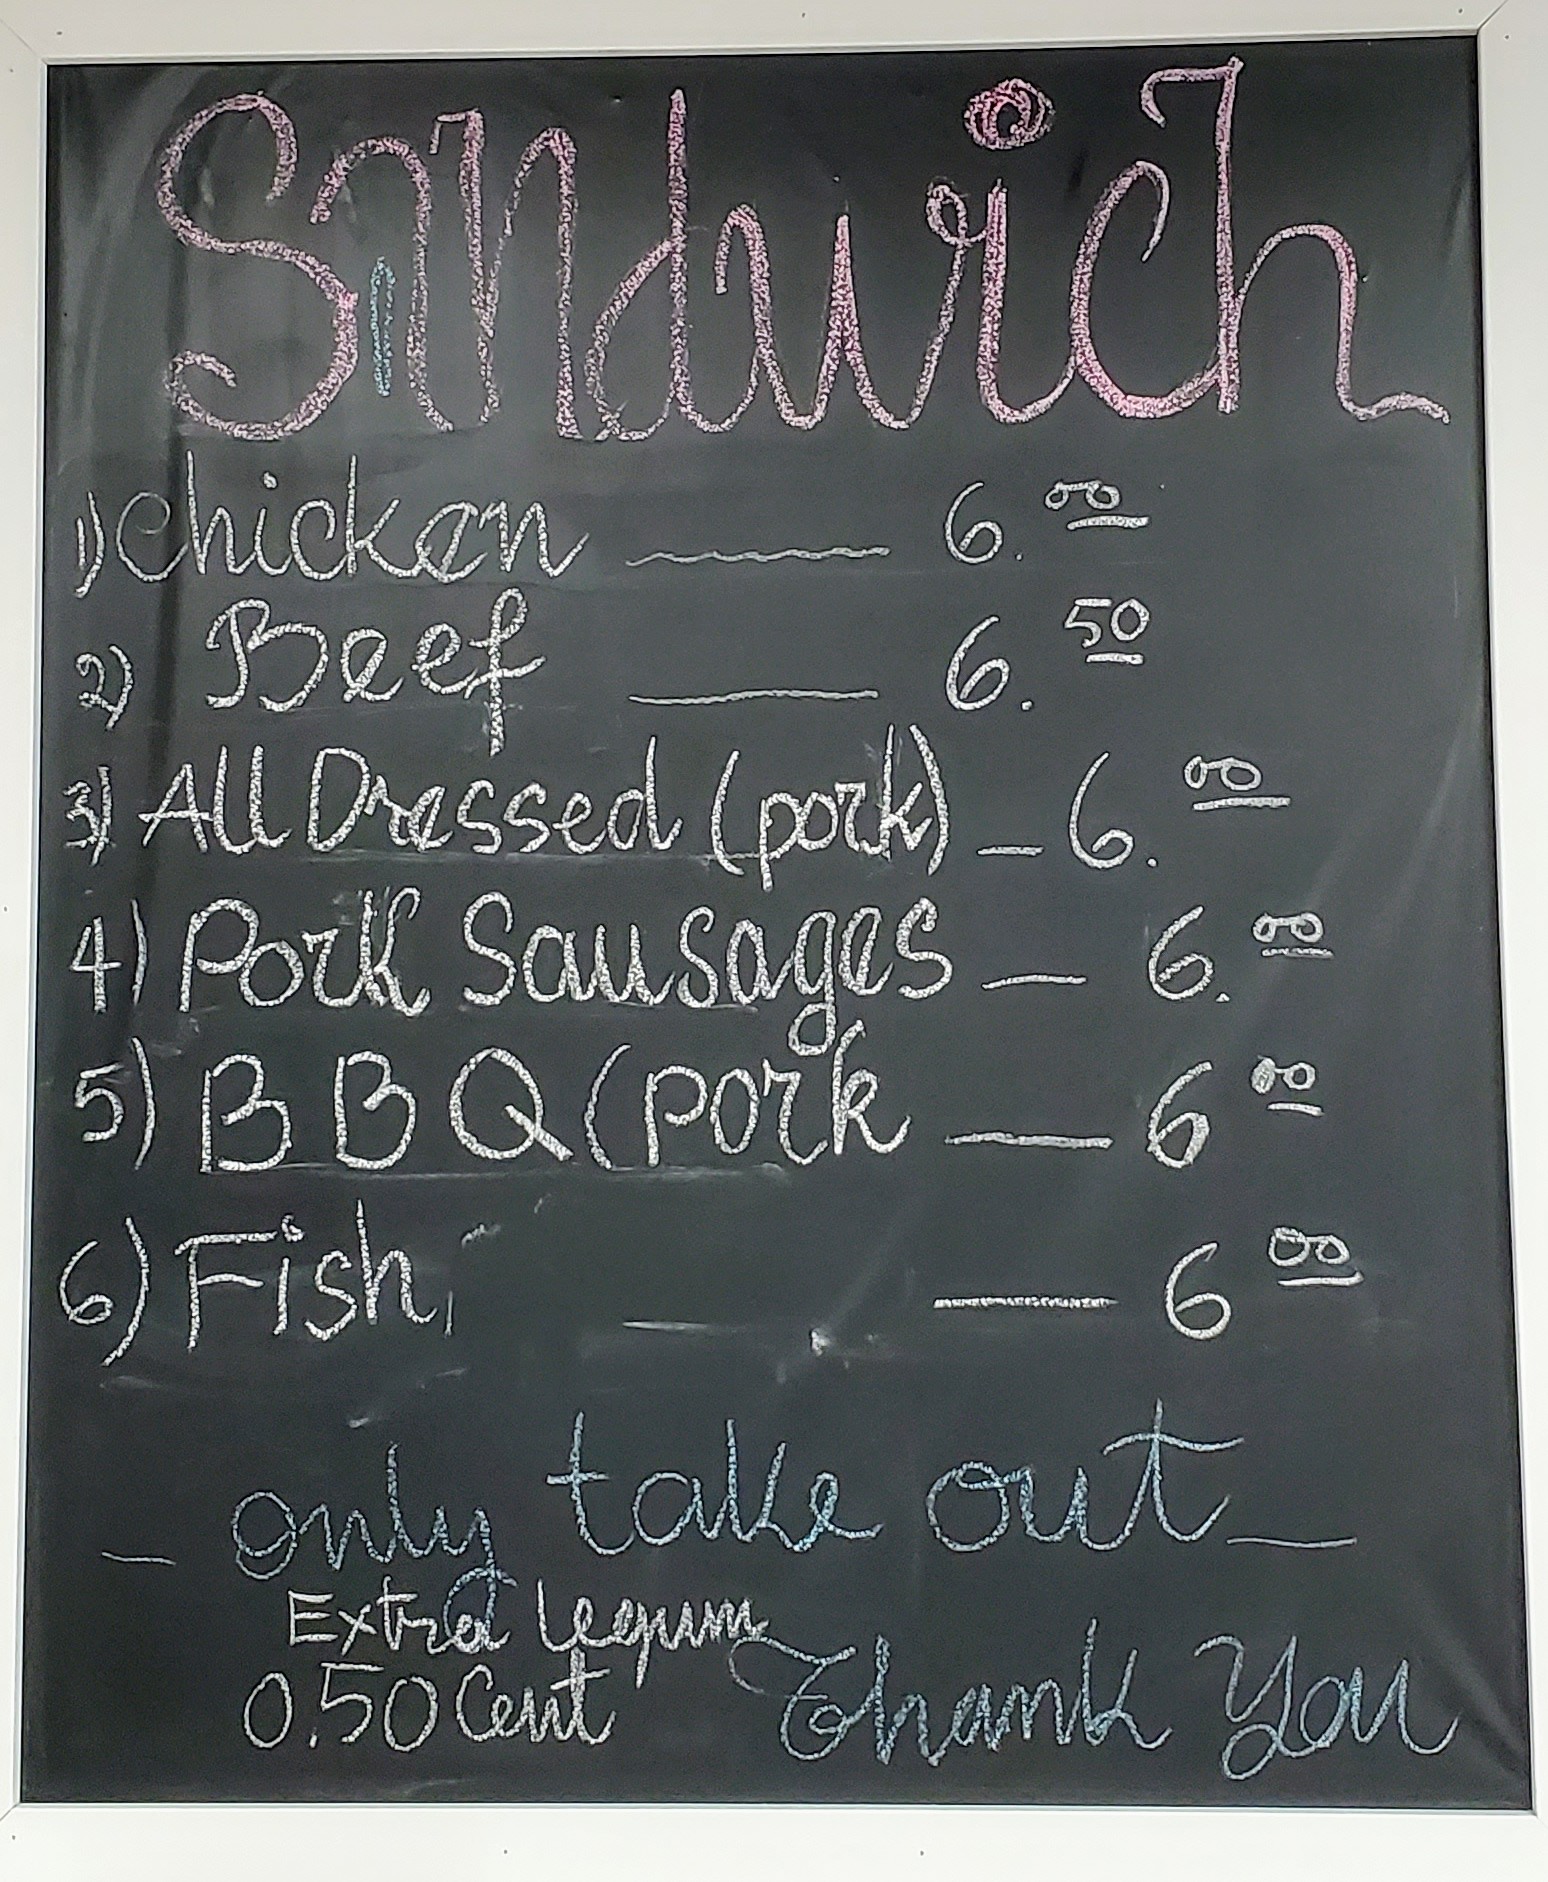 Sandwich
1) Chicken 6.00
2) Beef 6.50
3) All Dressed (pork) - 6.00
4) Pork Sausages - 6.00
5) BBQ (pork - 6 00
6) Fish, - 6 00
- only take out -
Extra legum
0.50 Cent
Thank You